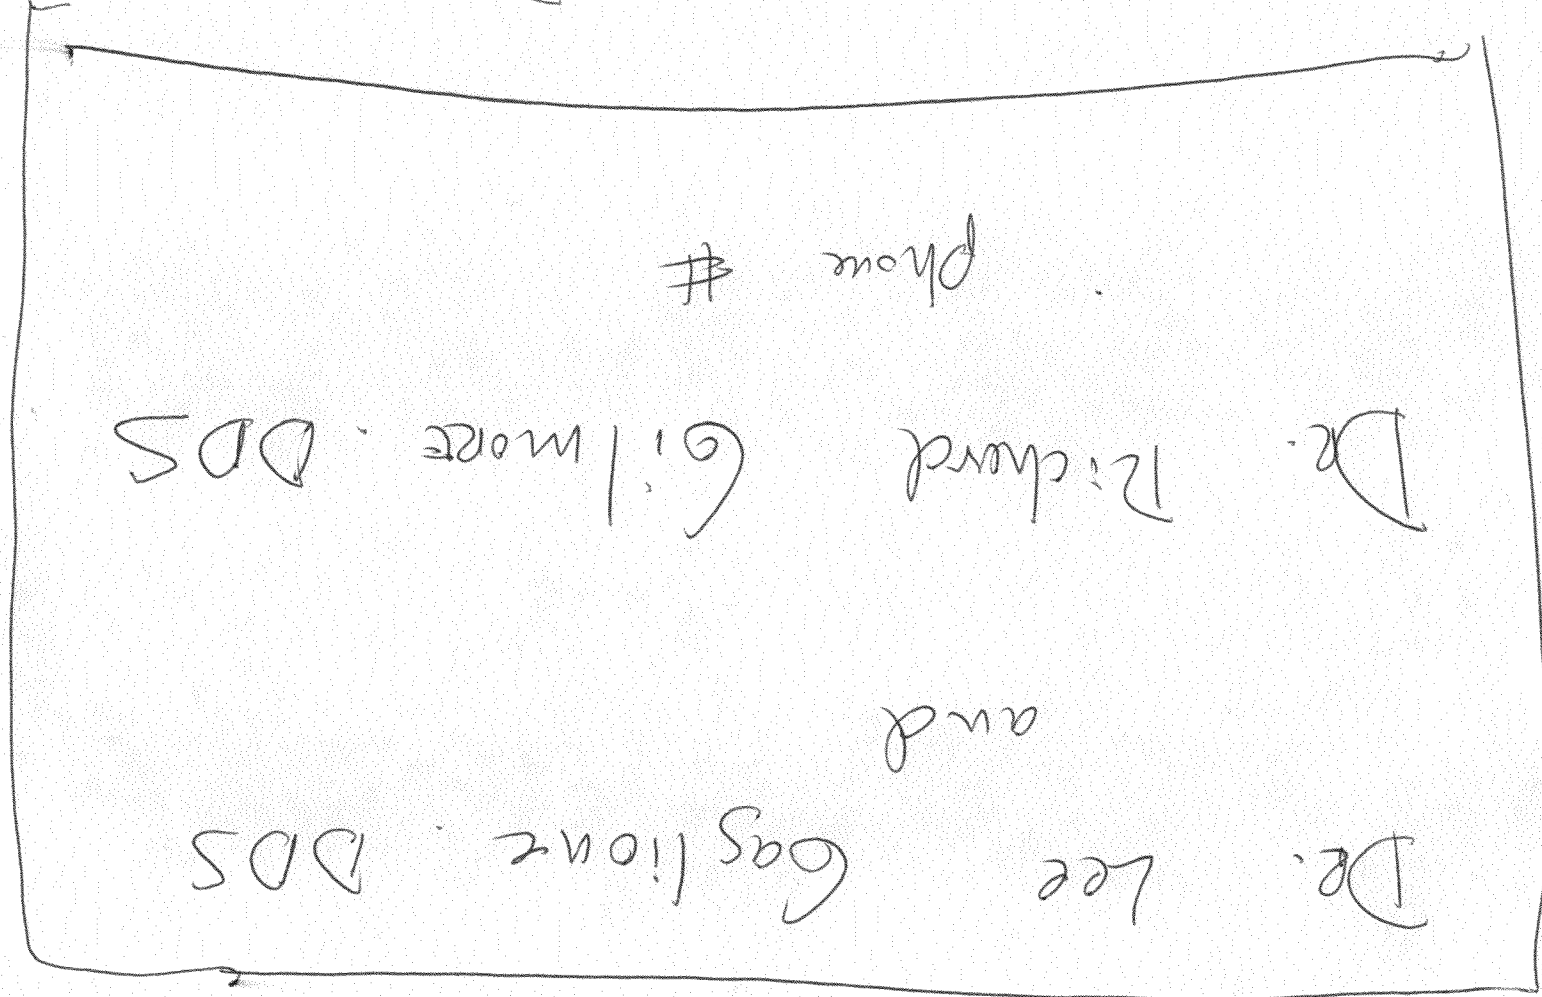 Dr. Lee Gaglione. DDS
and
Dr. Richard Gilmore. DDS
phone #